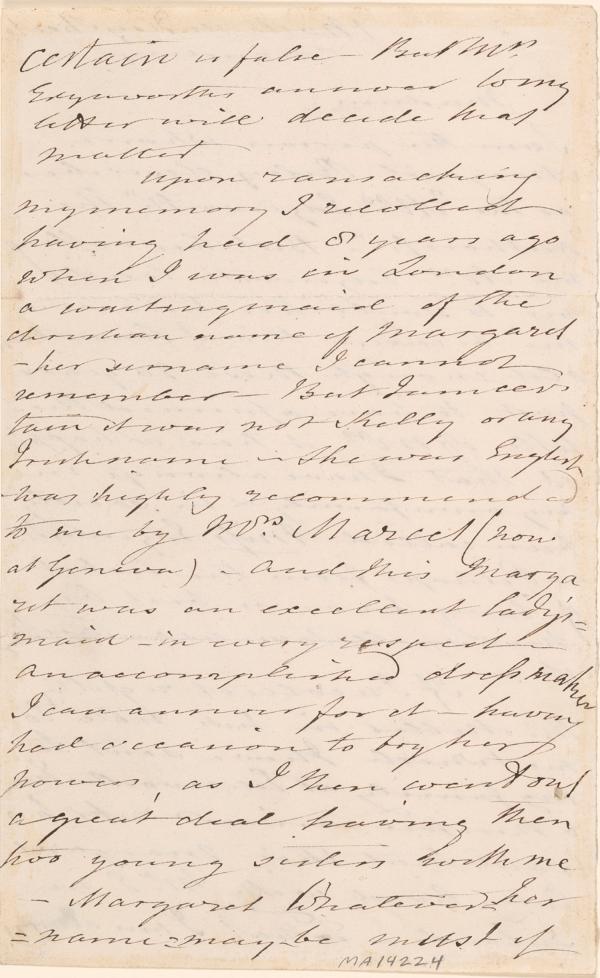 certain is false - But Mrs
Edgeworths answer to my
letter will decide that
matter
Upon ransacking
my memory I recollect
having had 8 years ago
when I was in London
a waiting maid of the
christian name of Margaret
- her surname I cannot
remember - But I am cer
tain it was not Kelly or any
Irish name - She was English
- was highly recommended
to me by Mrs. Marcet (now
at Geneva) - and this Marga
ret was an excellent lady's=
maid - in every respect -
an accomplished dressmaker
I can answer for it - having
had occasion to try her
powers, as I then went out
a great deal having then
two young sisters with me
- Margaret Whatever her
=name=may-be must if
MA14224